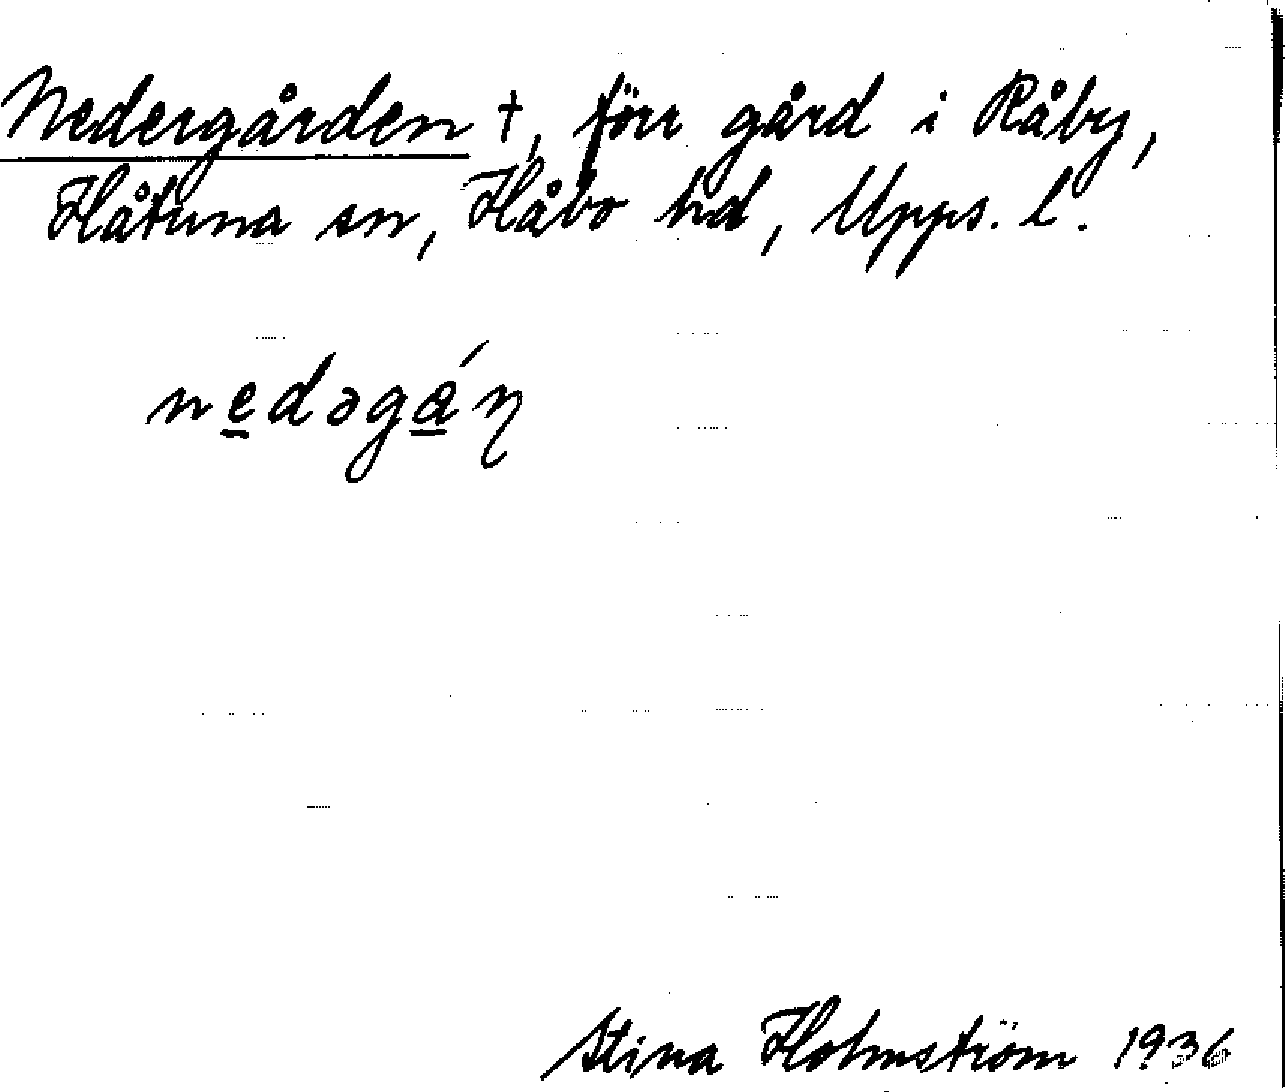 Nedergården †, förr gård i Råby,
Håtuna sn, Håbo hd, Upps. l.
nedəgán
Stina Holmström 1936